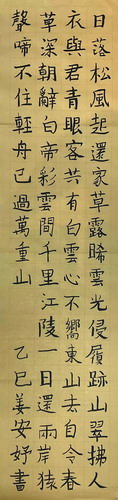 日落松風起還家草露晞雲光侵履跡山翠拂人
衣與君青眼客共有白雲心不嚮東山去自令春
草深朝辭白帝彩雲間千里江陵一日還兩岸猿
聲啼不住輕舟已過萬重山 乙巳姜安妤書